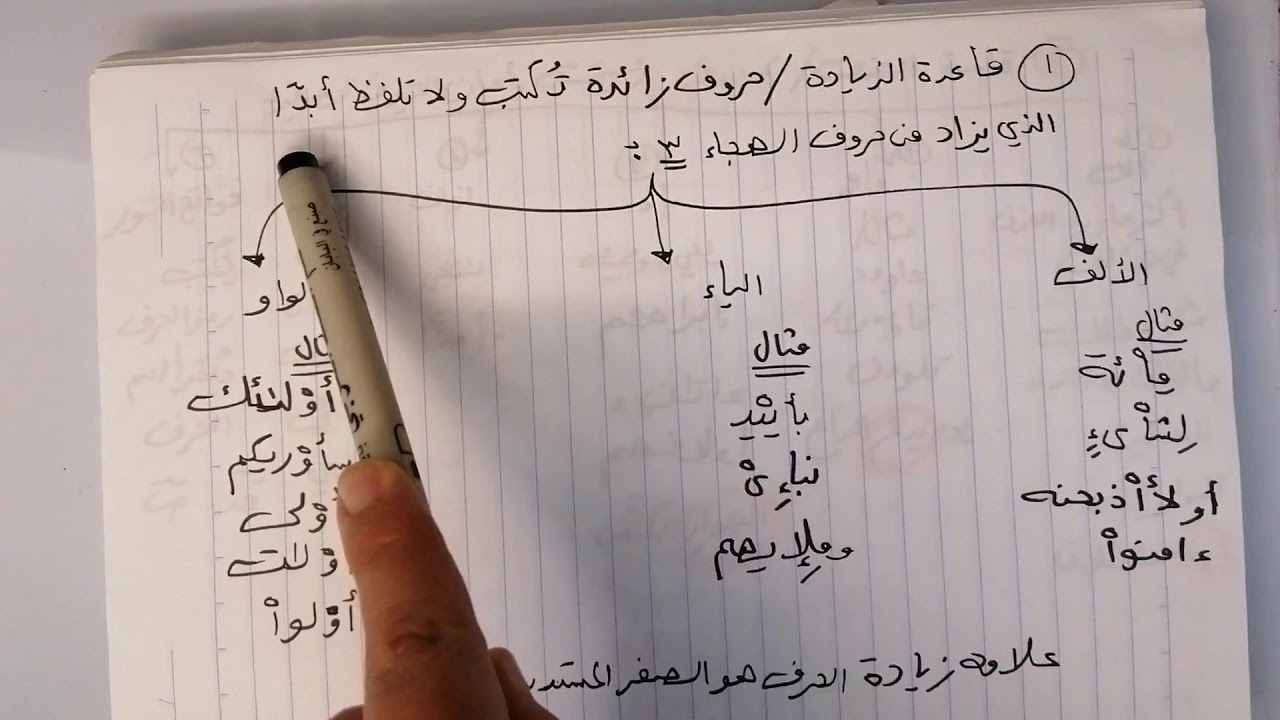 ١ قاعدة الزيادة / حروف زائدة تُكتب ولا تلفظ أبدًا
الذي يزاد من حروف الهجاء ٣ :
الألف
مثال
مِاْئة
لِشاْىءٍ
أو لأاْذبحنه
ءامنواْ
الياء
مثال
بأييْدٍ
نباِىْ
وملإيهم
لواو
أوْلـئك
سأوْريكم
وْلى
وْلات
أوْلواْ
علامه زيادة الحرف هو الصفر المستد
صنع في اليابان